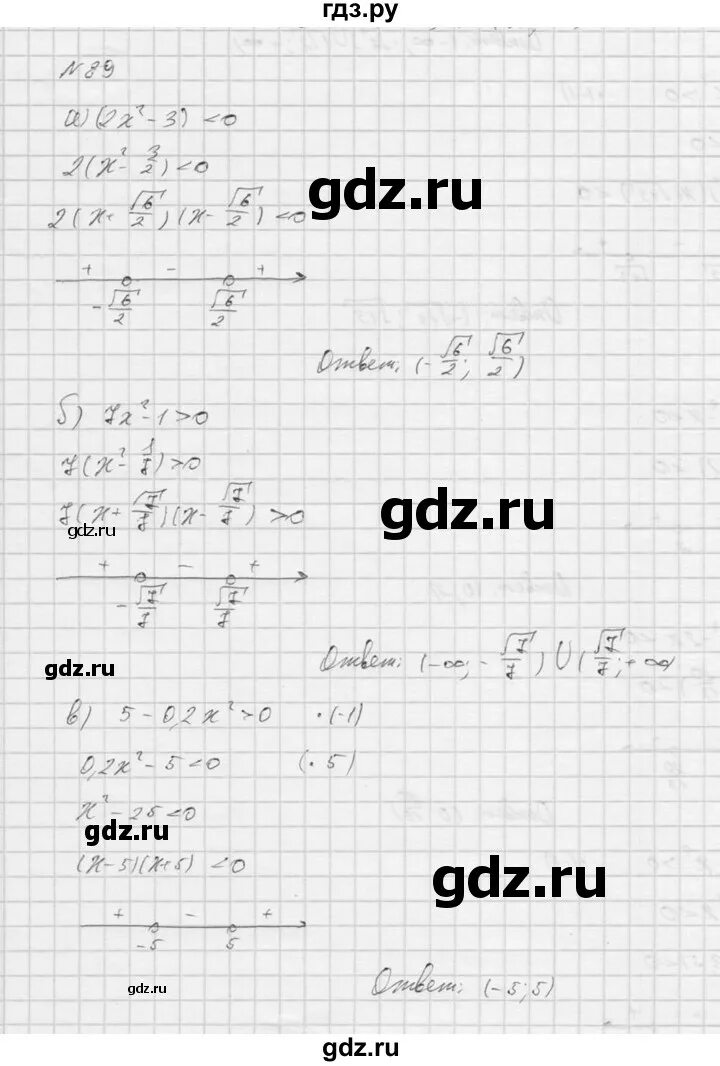 гдз.ру
N 89
а) (2x² - 3) < 0
2(x² - 3/2) < 0
gdz.ru
2(x + √6/2)(x - √6/2) < 0
+ - +
-√6/2 √6/2
Ответ: (-√6/2; √6/2)
б) 7x² - 1 > 0
7(x² - 1/7) > 0
gdz.ru
7(x + √7/7)(x - √7/7) > 0
gdz.ru
+ - +
-√7/7 √7/7
gdz.ru
Ответ: (-∞; -√7/7) ∪ (√7/7; +∞)
в) 5 - 0,2x² > 0 ·(-1)
0,2x² - 5 < 0 (· 5)
x² - 25 < 0
gdz.ru
(x-5)(x+5) < 0
gdz.ru
+ - +
-5 5
gdz.ru
Ответ: (-5; 5)
gdz.ru